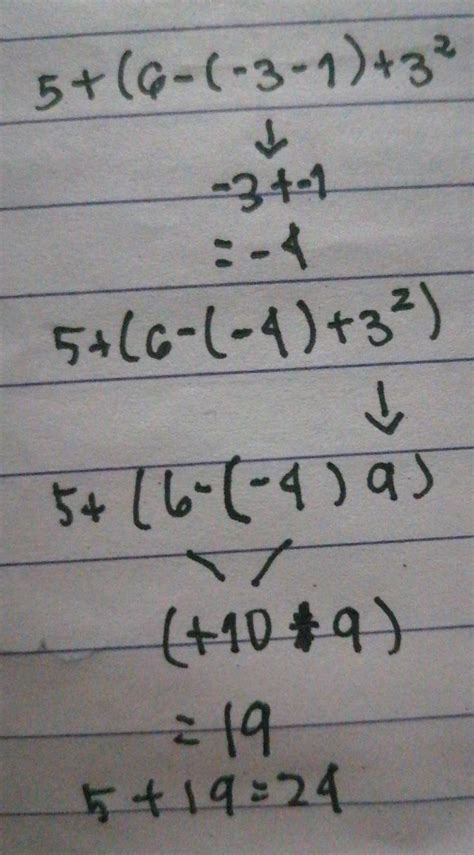 5+(6-(-3-1)+3²
↓
-3+-1
=-4
5+(6-(-4)+3²)
↓
5+(6-(-4) 9)
(+10 + 9)
=19
5+19=24